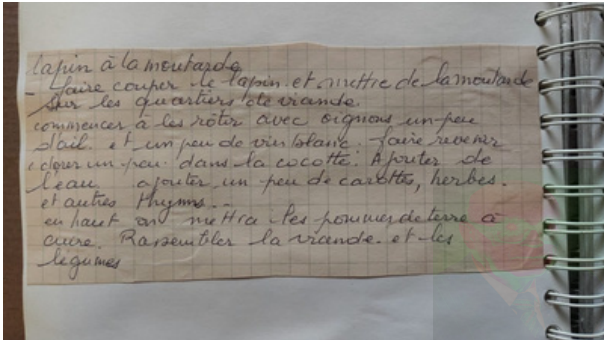 lapin à la moutarde
- faire couper le lapin et mettre de la moutarde
sur les quartiers de viande.
commencer à les rôtir avec oignons un peu
d'ail. et un peu de vin blanc. faire revenir
dorer un peu dans la cocotte. Ajouter de
l'eau ajouter un peu de carottes, herbes.
et autres thyms..
en haut on mettra les pommes de terre à
cuire. Rassembler la viande. et les
légumes